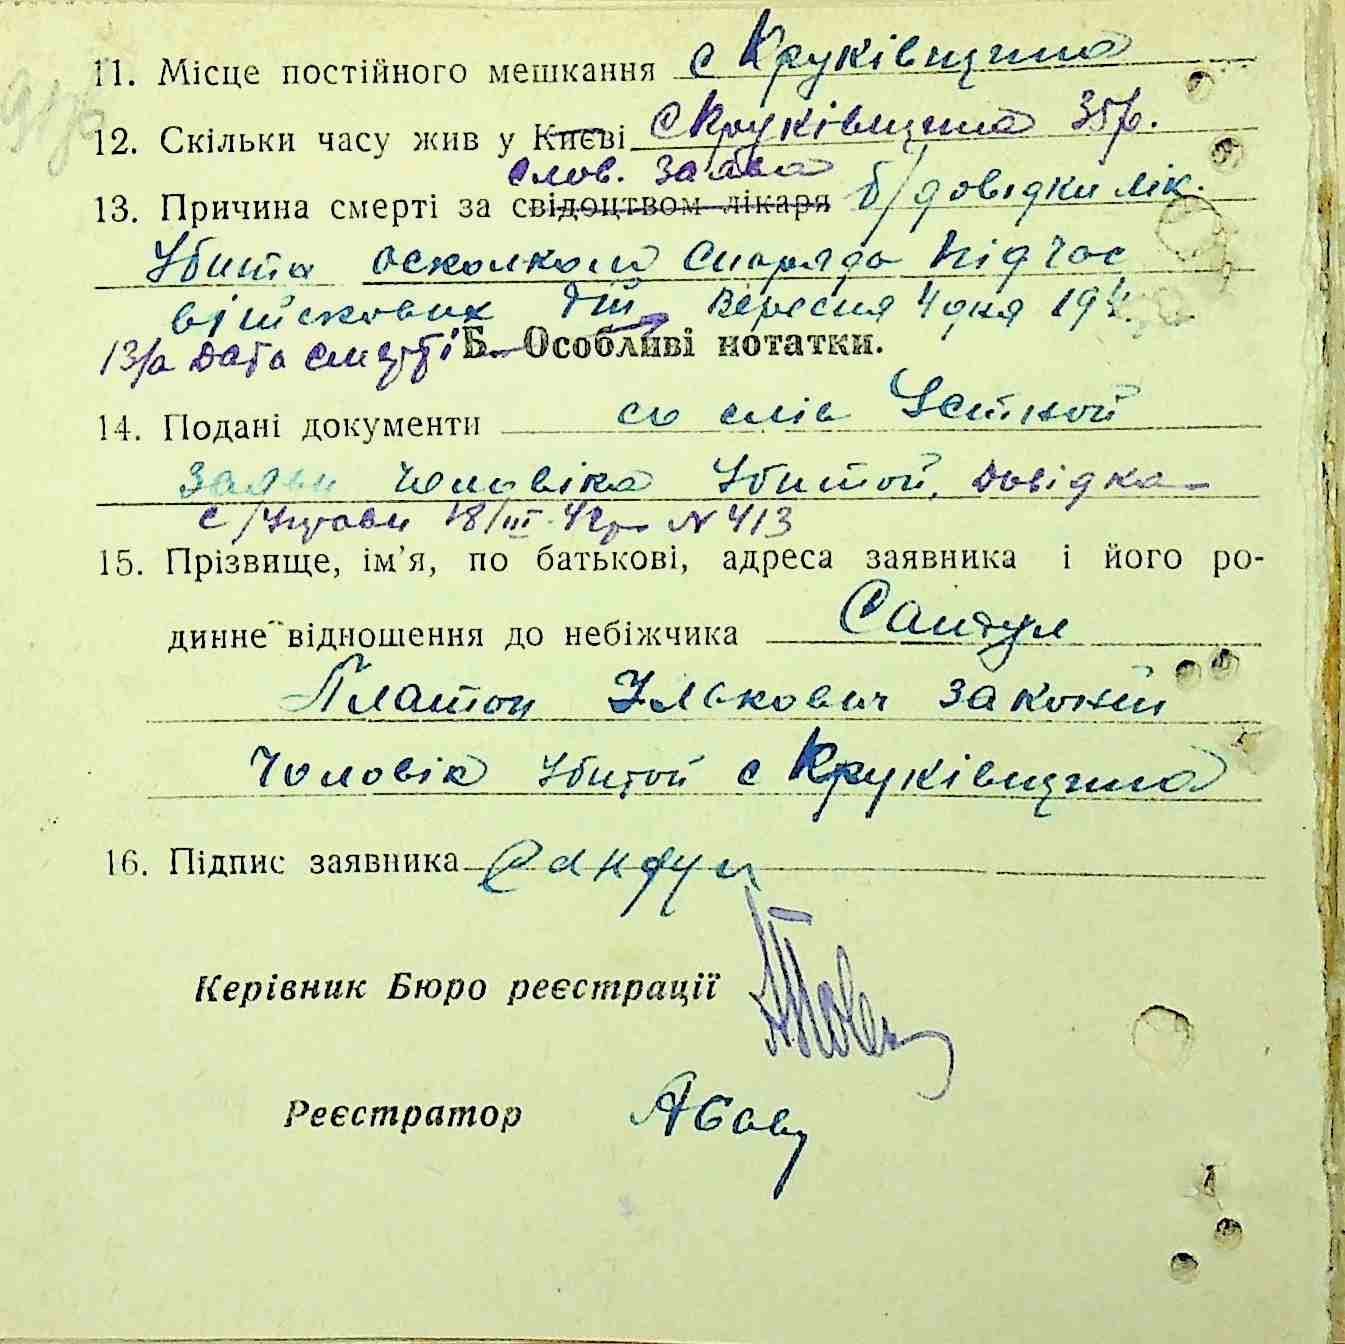 11. Місце постійного мешкання с Круківщина
12. Скільки часу жив у Києві с Круківщина 35 р.
слов. заява
13. Причина смерті за свідоцтвом лікаря б/довідки лік.
Убита осколком снаряда під час
військових дій Вересня 4 дня 194
13/а Дата смерті Б. Особливі нотатки.
14. Подані документи со слів Устной
Заяви чоловіка Убитой, Довідка
с/управи 18/III-42р N 413
15. Прізвище, ім’я, по батькові, адреса заявника і його ро-
динне відношення до небіжчика Сандул
Платон Ількович законий
Чоловік Убитой с Круківщина
16. Підпис заявника Сандул
Керівник Бюро реєстрації
Реєстратор